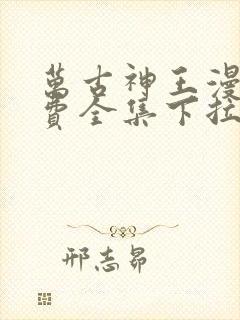 萬古神王漫
費全集下拉
邢志昂